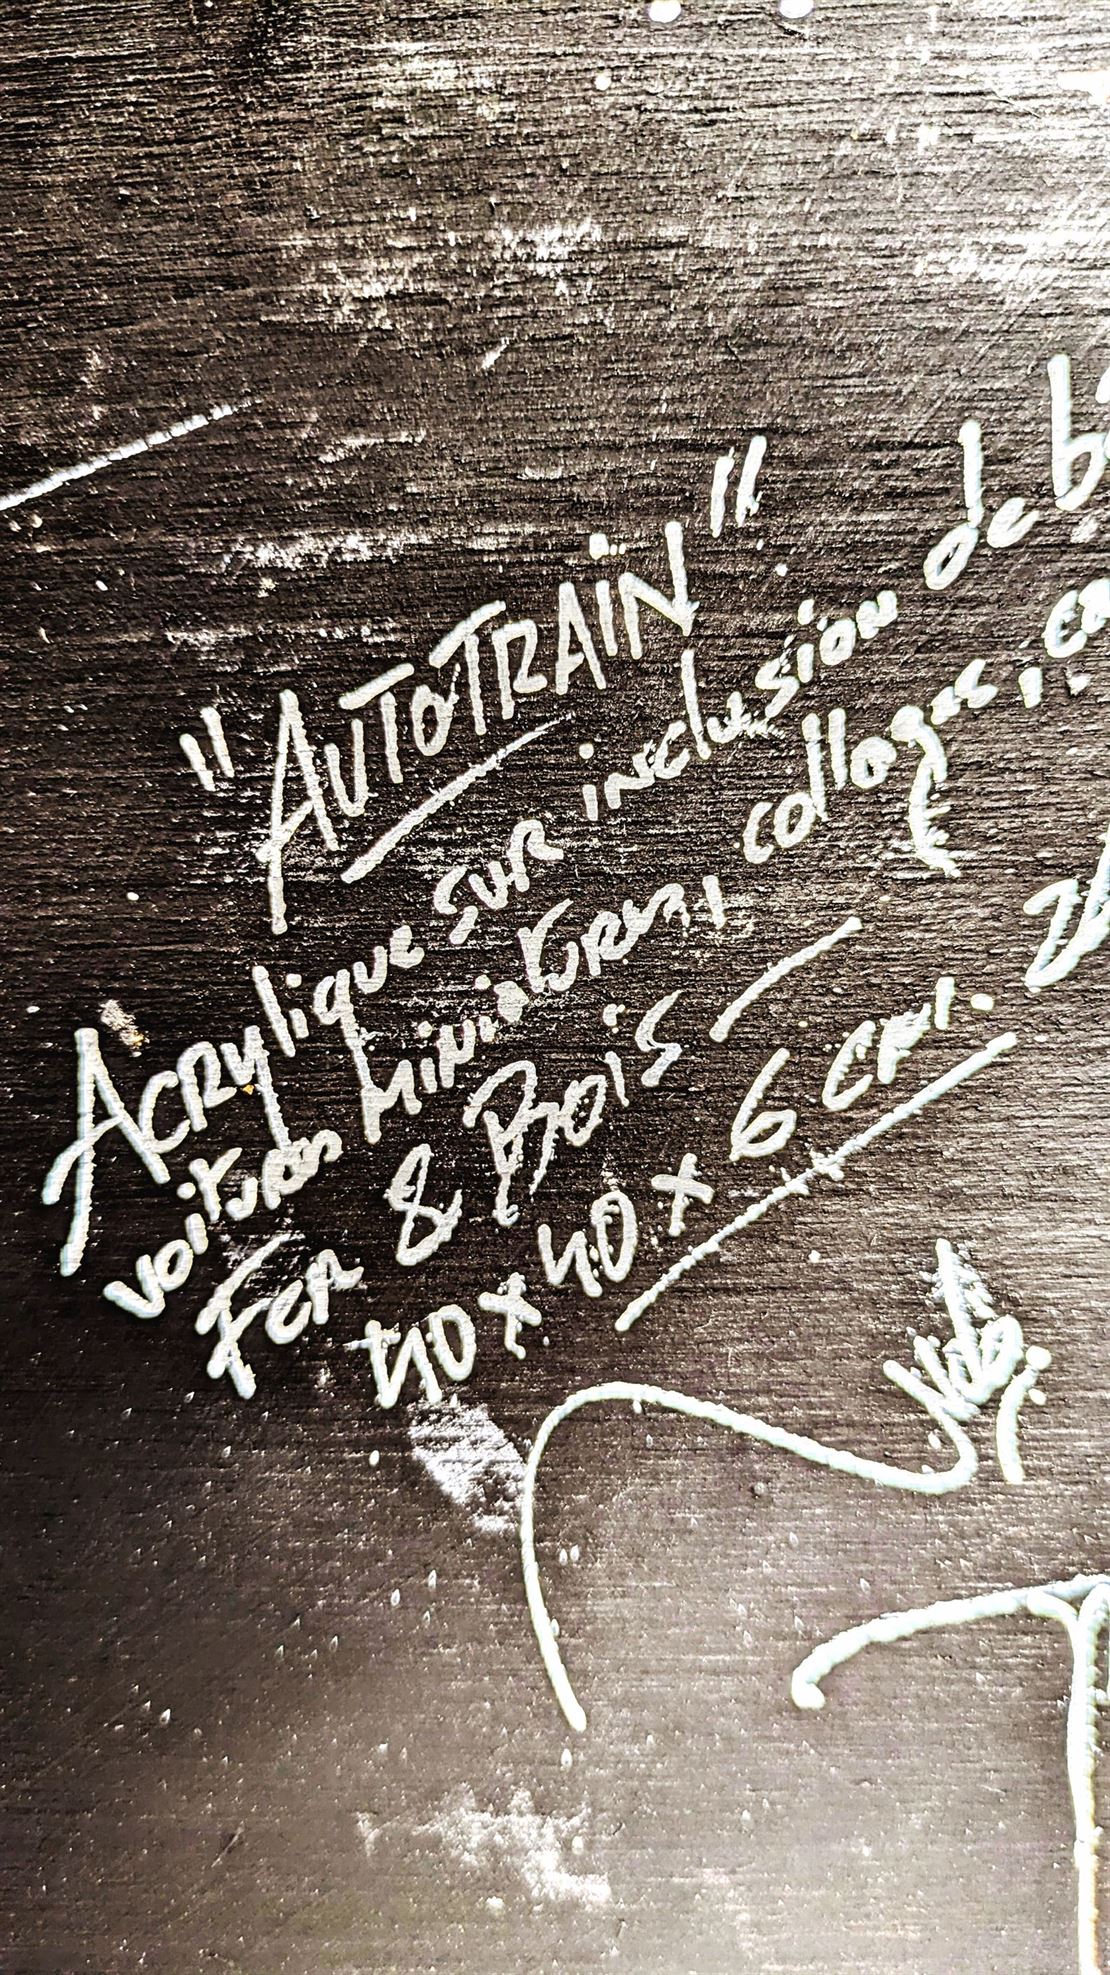 "AUTOTRAIN"
Acrylique sur inclusion de
voitures miniatures, collages,
Fer & Bois —
40 x 40 x 6 cm.